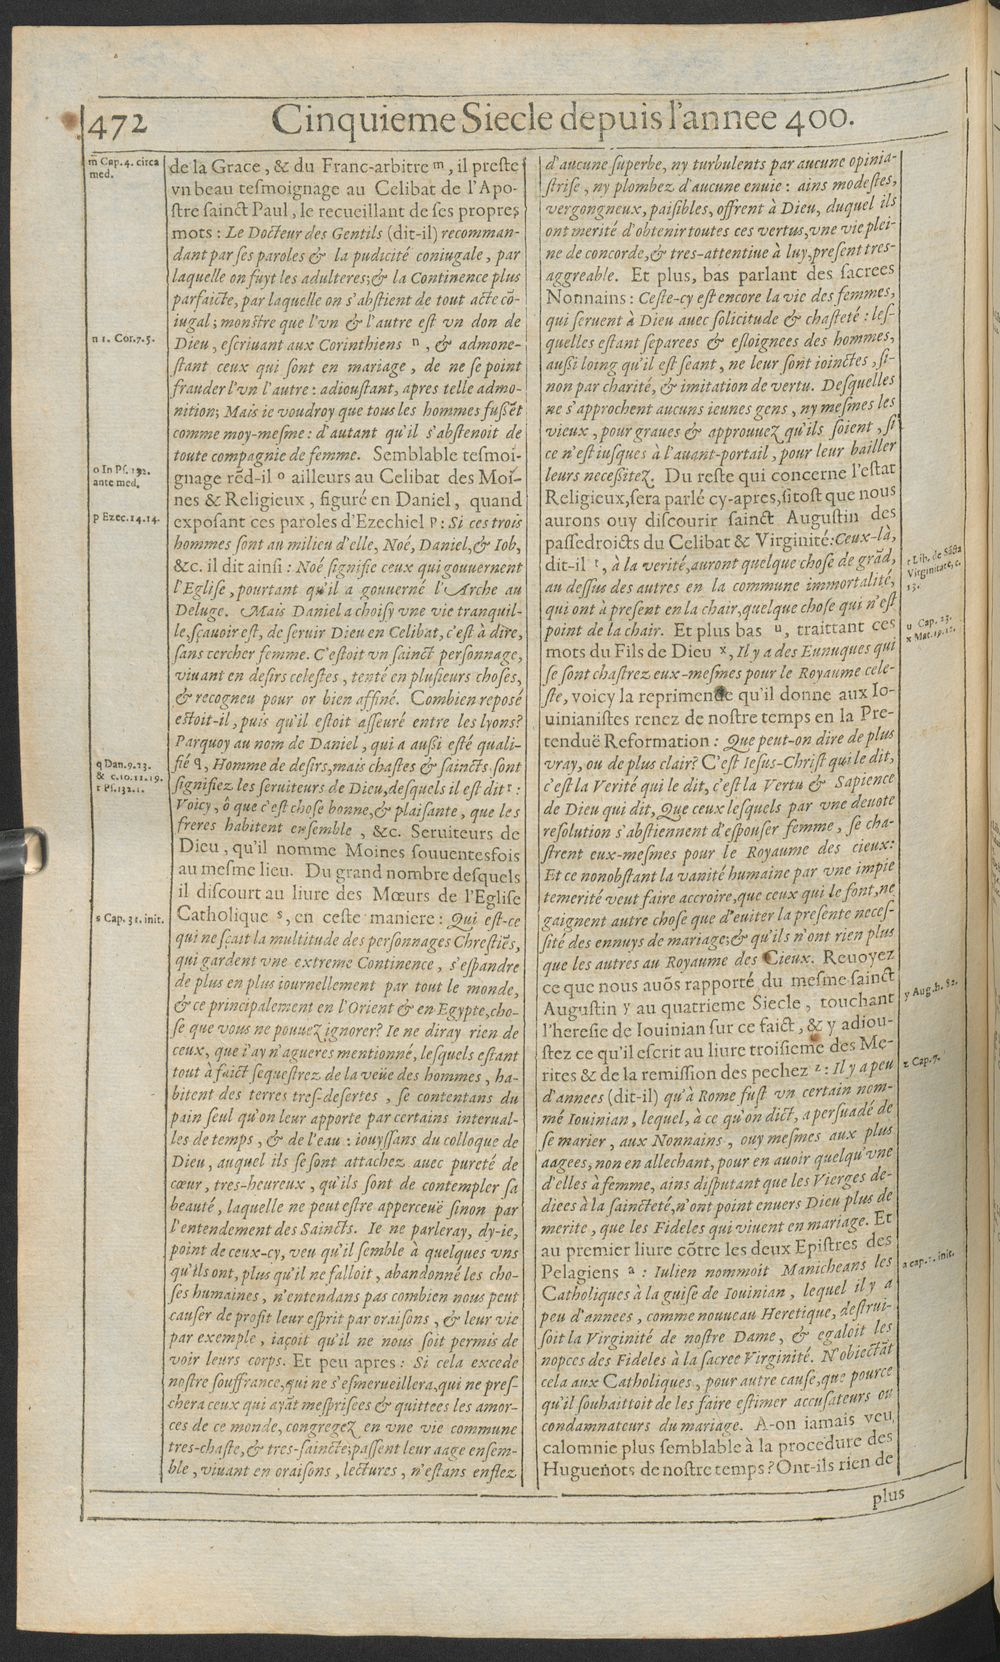 472
Cinquieme Siecle depuis l'annee 400.
m Cap. 4. circa
med.
n 1. Cor. 7. 5.
o In Ps. 132.
ante med.
p Ezec. 14. 14.
q Dan. 9. 23.
& c. 10. 11. 19.
r Ps. 132. 1.
s Cap. 31. init.
de la Grace, & du Franc-arbitre m, il preſte
vn beau teſmoignage au Celibat de l'Apo-
ſtre ſainct Paul, le recueillant de ſes propres
mots : Le Docteur des Gentils (dit-il) recomman-
dant par ſes paroles & la pudicité coniugale, par
laquelle on fuyt les adulteres; & la Continence plus
parfaicte, par laquelle on s'abſtient de tout acte cō-
iugal; monſtre que l'vn & l'autre eſt vn don de
Dieu, eſcriuant aux Corinthiens n, & admone-
ſtant ceux qui ſont en mariage, de ne ſe point
frauder l'vn l'autre : adiouſtant, apres telle admo-
nition; Mais ie voudroy que tous les hommes fuſſēt
comme moy-meſme : d'autant qu'il s'abſtenoit de
toute compagnie de femme. Semblable teſmoi-
gnage rēd-il o ailleurs au Celibat des Moi-
nes & Religieux, figuré en Daniel, quand
expoſant ces paroles d'Ezechiel p : Si ces trois
hommes ſont au milieu d'elle, Noé, Daniel, & Iob,
&c. il dit ainſi : Noé ſignifie ceux qui gouuernent
l'Egliſe, pourtant qu'il a gouuerné l'Arche au
Deluge. Mais Daniel a choiſy vne vie tranquil-
le, ſçauoir eſt, de ſeruir Dieu en Celibat, c'eſt à dire,
ſans cercher femme. C'eſtoit vn ſainct perſonnage,
viuant en deſirs celeſtes, tenté en pluſieurs choſes,
& recogneu pour or bien affiné. Combien repoſé
eſtoit-il, puis qu'il eſtoit aſſeuré entre les lyons?
Parquoy au nom de Daniel, qui a auſſi eſté quali-
fié q, Homme de deſirs, mais chaſtes & ſaincts ſont
ſignifiez les ſeruiteurs de Dieu, deſquels il eſt dit r :
Voicy, ô que c'eſt choſe bonne, & plaiſante, que les
freres habitent enſemble, &c. Seruiteurs de
Dieu, qu'il nomme Moines ſouuentesfois
au meſme lieu. Du grand nombre deſquels
il diſcourt au liure des Mœurs de l'Egliſe
Catholique s, en ceſte maniere : Qui eſt-ce
qui ne ſçait la multitude des perſonnages Chreſtiēs,
qui gardent vne extreme Continence, s'eſpandre
de plus en plus iournellement par tout le monde,
& ce principalement en l'Orient & en Egypte, cho-
ſe que vous ne pouuez ignorer? Ie ne diray rien de
ceux, que i'ay n'agueres mentionné, leſquels eſtant
tout à faict ſequeſtrez de la veüe des hommes, ha-
bitent des terres treſ-deſertes, ſe contentans du
pain ſeul qu'on leur apporte par certains interual-
les de temps, & de l'eau : iouyſſans du colloque de
Dieu, auquel ils ſe ſont attachez auec pureté de
cœur, tres-heureux, qu'ils ſont de contempler ſa
beauté, laquelle ne peut eſtre apperceuë ſinon par
l'entendement des Saincts. Ie ne parleray, dy-ie,
point de ceux-cy, veu qu'il ſemble à quelques vns
qu'ils ont, plus qu'il ne falloit, abandonné les cho-
ſes humaines, n'entendans pas combien nous peut
cauſer de profit leur eſprit par oraiſons, & leur vie
par exemple, iaçoit qu'il ne nous ſoit permis de
voir leurs corps. Et peu apres : Si cela excede
noſtre ſouffrance, qui ne s'eſmerueillera, qui ne preſ-
chera ceux qui ayāt meſpriſees & quittees les amor-
ces de ce monde, congregez en vne vie commune
tres-chaſte, & tres-ſaincte; paſſent leur aage enſem-
ble, viuant en oraiſons, lectures, n'eſtans enflez
d'aucune ſuperbe, ny turbulents par aucune opinia-
ſtriſe, ny plombez d'aucune enuie : ains modeſtes,
vergongneux, paiſibles, offrent à Dieu, duquel ils
ont merité d'obtenir toutes ces vertus, vne vie plei-
ne de concorde, & tres-attentiue à luy, preſent tres-
aggreable. Et plus, bas parlant des ſacrees
Nonnains : Ceſte-cy eſt encore la vie des femmes,
qui ſeruent à Dieu auec ſolicitude & chaſteté : leſ-
quelles eſtant ſeparees & eſloignees des hommes,
auſſi loing qu'il eſt ſeant, ne leur ſont ioinctes, ſi-
non par charité, & imitation de vertu. Deſquelles
ne s'approchent aucuns ieunes gens, ny meſmes les
vieux, pour graues & approuuez qu'ils ſoient, ſi
ce n'eſt iuſques à l'auant-portail, pour leur bailler
leurs neceſſitez. Du reſte qui concerne l'eſtat
Religieux, ſera parlé cy-apres, ſitoſt que nous
aurons ouy diſcourir ſainct Auguſtin des
paſſedroicts du Celibat & Virginité : Ceux-là,
dit-il t, à la verité, auront quelque choſe de grād,
au deſſus des autres en la commune immortalité,
qui ont à preſent en la chair, quelque choſe qui n'eſt
point de la chair. Et plus bas u, traittant ces
mots du Fils de Dieu x, Il y a des Eunuques qui
ſe ſont chaſtrez eux-meſmes pour le Royaume cele-
ſte, voicy la reprimende qu'il donne aux Io-
uinianiſtes renez de noſtre temps en la Pre-
tenduë Reformation : Que peut-on dire de plus
vray, ou de plus clair? C'eſt Ieſus-Chriſt qui le dit,
c'eſt la Verité qui le dit, c'eſt la Vertu & Sapience
de Dieu qui dit, Que ceux leſquels par vne deuote
reſolution s'abſtiennent d'eſpouſer femme, ſe cha-
ſtrent eux-meſmes pour le Royaume des cieux:
Et ce nonobſtant la vanité humaine par vne impie
temerité veut faire accroire, que ceux qui le font, ne
gaignent autre choſe que d'euiter la preſente neceſ-
ſité des ennuys de mariage; & qu'ils n'ont rien plus
que les autres au Royaume des Cieux. Reuoyez
ce que nous auōs rapporté du meſme ſainct
Auguſtin y au quatrieme Siecle, touchant
l'hereſie de Iouinian ſur ce faict, & y adiou-
ſtez ce qu'il eſcrit au liure troiſieme des Me-
rites & de la remiſſion des pechez z : Il y a peu
d'annees (dit-il) qu'à Rome fuſt vn certain nom-
mé Iouinian, lequel, à ce qu'on dict, a perſuadé de
ſe marier, aux Nonnains, ouy meſmes aux plus
aagees, non en allechant, pour en auoir quelqu'vne
d'elles à femme, ains diſputant que les Vierges de-
diees à la ſaincteté, n'ont point enuers Dieu plus de
merite, que les Fideles qui viuent en mariage. Et
au premier liure cōtre les deux Epiſtres des
Pelagiens a : Iulien nommoit Manicheans les
Catholiques à la guiſe de Iouinian, lequel il y a
peu d'annees, comme nouueau Heretique, deſtrui-
ſoit la Virginité de noſtre Dame, & egaloit les
nopces des Fideles à la ſacree Virginité. N'obiectāt
cela aux Catholiques, pour autre cauſe, que pource
qu'il ſouhaittoit de les faire eſtimer accuſateurs ou
condamnateurs du mariage. A-on iamais veu
calomnie plus ſemblable à la procedure des
Huguenots de noſtre temps? Ont-ils rien de
t Lib. de Sācta
Virginitate, c.
13.
u Cap. 23.
x Mat. 19. 12.
y Aug. h. 82.
z Cap. 7.
a cap. 1. init.
plus